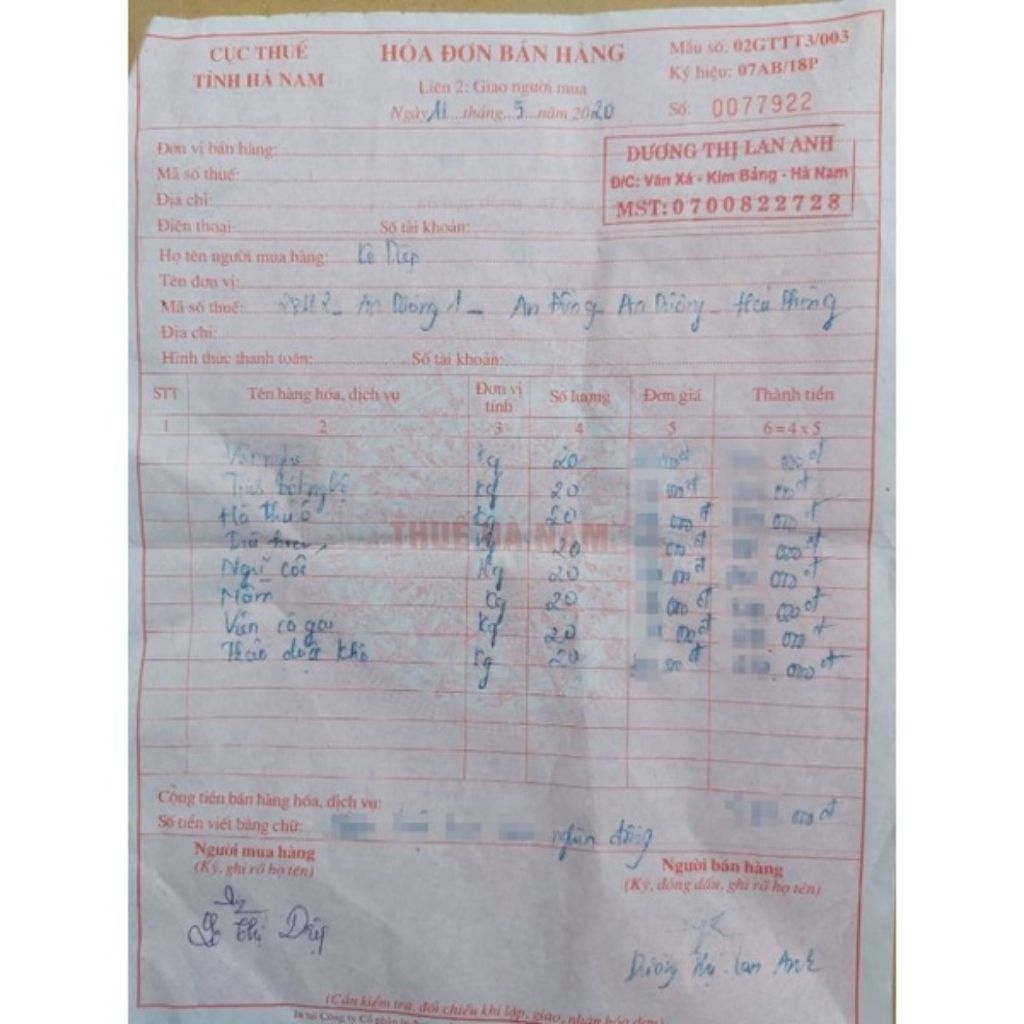 CỤC THUẾ
TỈNH HÀ NAM
HÓA ĐƠN BÁN HÀNG
Liên 2: Giao người mua
Ngày 11 tháng 5 năm 2020
Mẫu số: 02GTTT3/003
Ký hiệu: 07AB/18P
Số: 0077922
DƯƠNG THỊ LAN ANH
Đ/C: Văn Xá - Kim Bảng - Hà Nam
MST: 0700822728
Đơn vị bán hàng:
Mã số thuế:
Địa chỉ:
Điện thoại: Số tài khoản:
Họ tên người mua hàng:
Tên đơn vị:
Mã số thuế: An Dương 1 - An Đồng - An Dương - Hải Phòng
Địa chỉ:
Hình thức thanh toán: Số tài khoản:
STT Tên hàng hóa, dịch vụ Đơn vị tính Số lượng Đơn giá Thành tiền
1 2 3 4 5 6 = 4 x 5
kg 20 000đ 000đ
Tinh bột nghệ kg 20 000đ 000đ
Hà thủ ô kg 20 000đ 000đ
kg 20 000đ 000đ
Ngũ cốc kg 20 000đ 000đ
Mầm kg 20 000đ 000đ
Viên cà gai kg 20 000đ 000đ
Thảo dược khô kg 20 000đ 000đ
THUẾ HÀ NAM
Cộng tiền bán hàng hóa, dịch vụ: 000đ
Số tiền viết bằng chữ: nghìn đồng
Người mua hàng
(Ký, ghi rõ họ tên)
Người bán hàng
(Ký, đóng dấu, ghi rõ họ tên)
Thị Diệp
Dương Thị Lan Anh
(Cần kiểm tra, đối chiếu khi lập, giao, nhận hóa đơn)
In tại Công ty Cổ phần